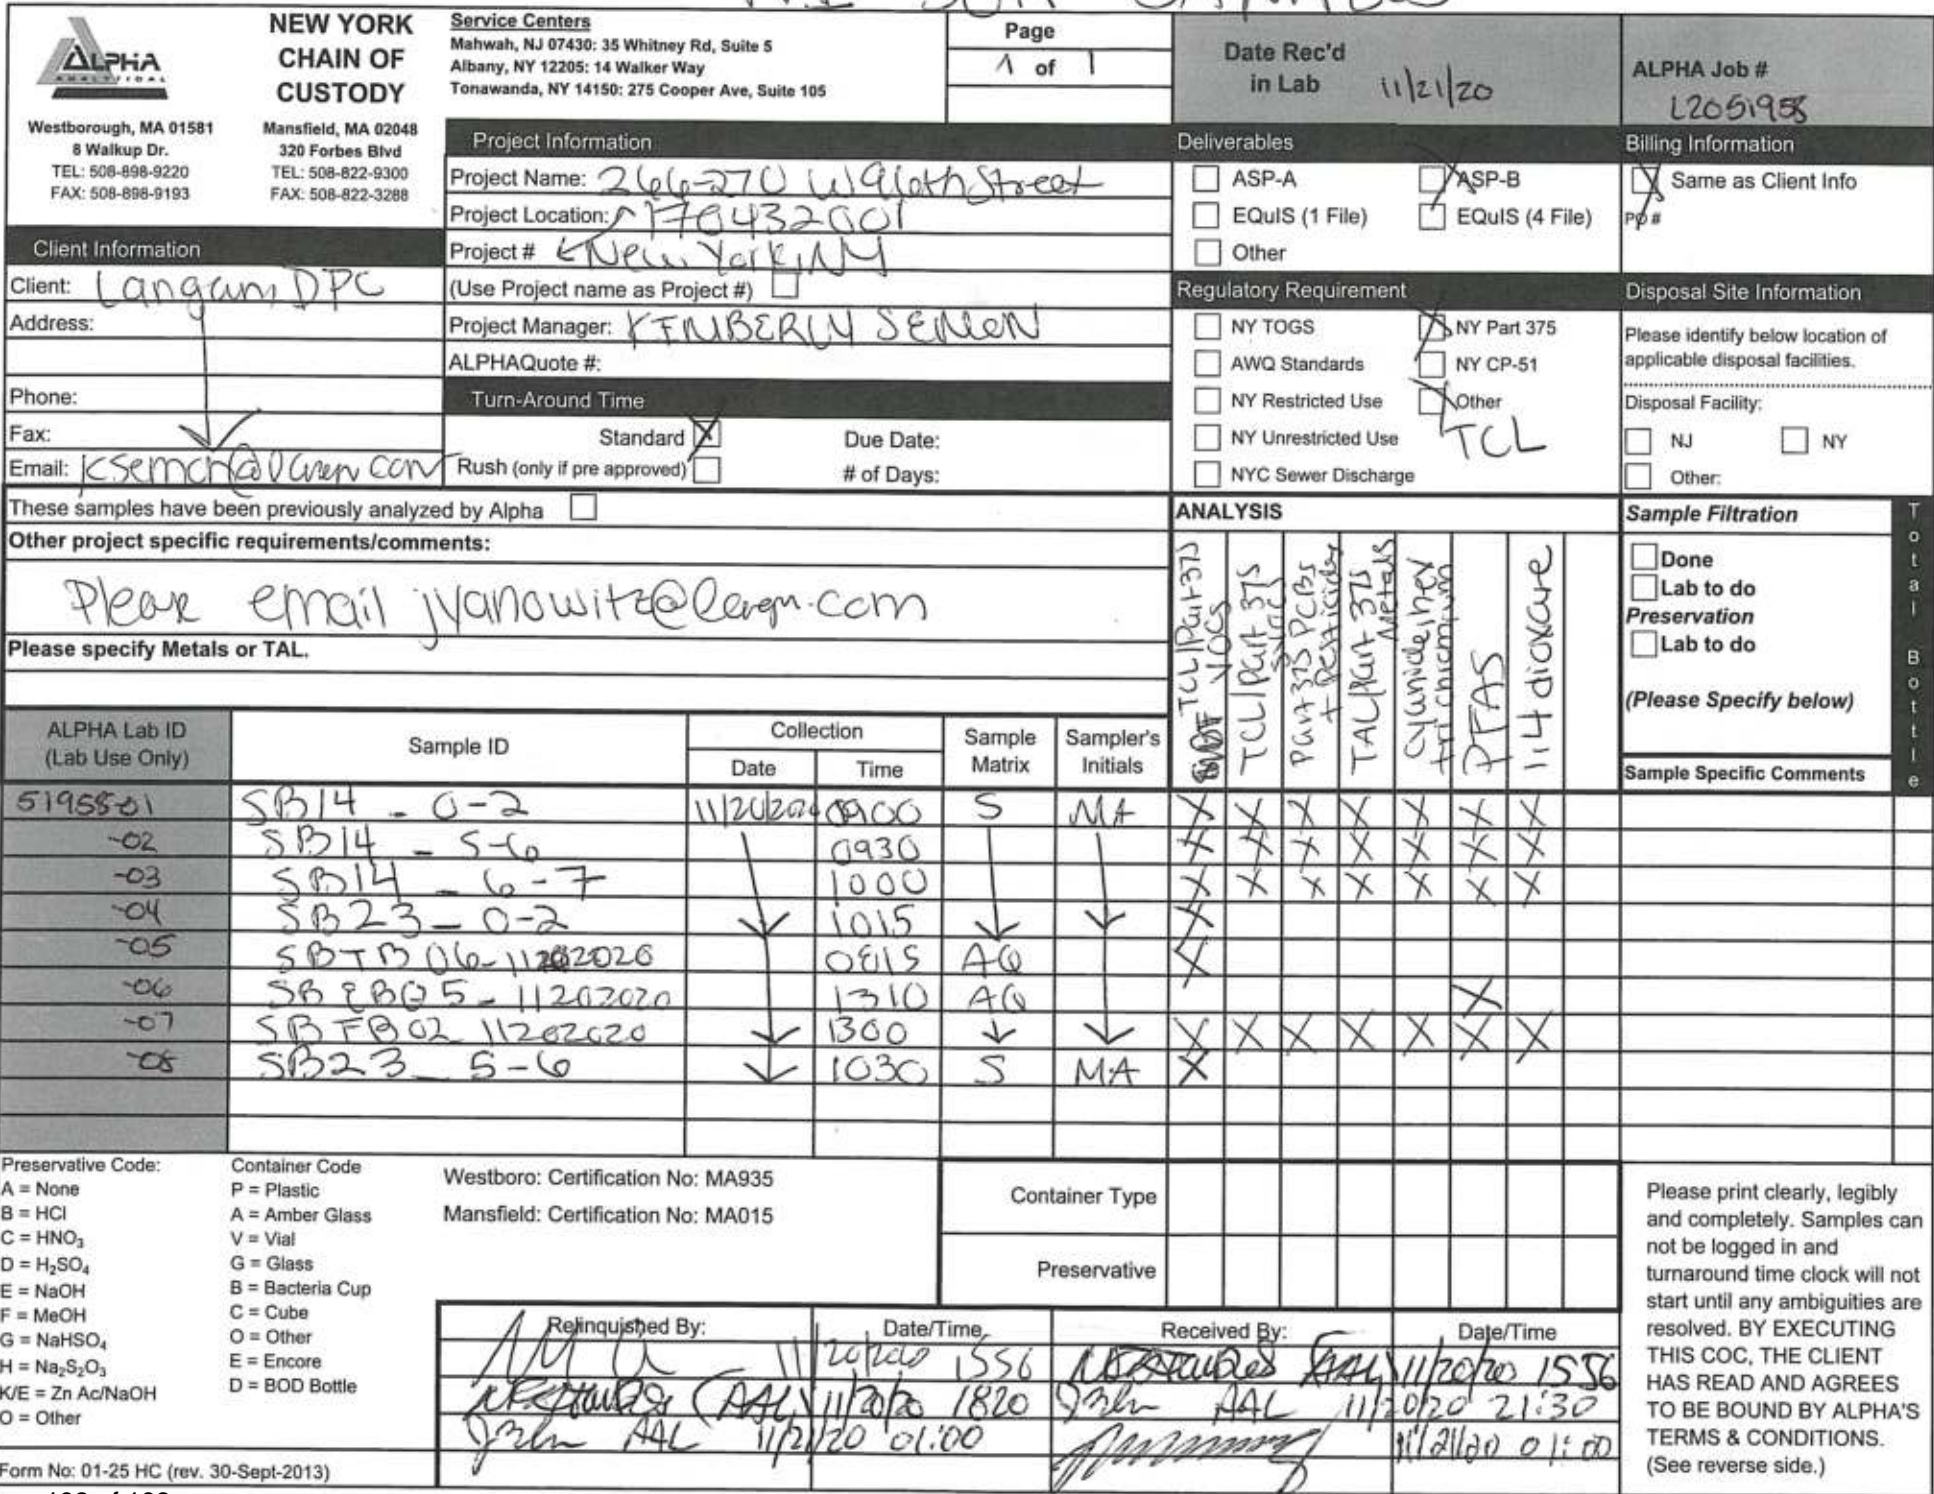 ALPHA
ANALYTICAL
NEW YORK
CHAIN OF
CUSTODY
Westborough, MA 01581
8 Walkup Dr.
TEL: 508-898-9220
FAX: 508-898-9193
Mansfield, MA 02048
320 Forbes Blvd
TEL: 508-822-9300
FAX: 508-822-3288
Service Centers
Mahwah, NJ 07430: 35 Whitney Rd, Suite 5
Albany, NY 12205: 14 Walker Way
Tonawanda, NY 14150: 275 Cooper Ave, Suite 105
Page
1 of 1
Date Rec'd
in Lab 11/21/20
ALPHA Job #
L2051958
Project Information
Project Name: 266-270 W 96th Street
Project Location: 170432001
Project # New York, NY
(Use Project name as Project #)
Project Manager: KIMBERLY SEMON
ALPHAQuote #:
Turn-Around Time
Standard X Due Date:
Rush (only if pre approved) # of Days:
Client Information
Client: Langan DPC
Address:
Phone:
Fax:
Email:
Deliverables
ASP-A X ASP-B
EQuIS (1 File) EQuIS (4 File)
Other
Billing Information
X Same as Client Info
PO #
Regulatory Requirement
NY TOGS X NY Part 375
AWQ Standards NY CP-51
NY Restricted Use X Other
NY Unrestricted Use TCL
NYC Sewer Discharge
Disposal Site Information
Please identify below location of
applicable disposal facilities.
Disposal Facility:
NJ NY
Other:
These samples have been previously analyzed by Alpha
Other project specific requirements/comments:
Please email jyanowitz@langan.com
Please specify Metals or TAL.
ANALYSIS
TCL/Part 375 VOCs
TCL/Part 375
Part 375 PCBs + Pesticides
TAL/Part 375 Metals
Cyanide, hex, tri chromium
PFAS
1,4 dioxane
Sample Filtration
Done
Lab to do
Preservation
Lab to do
(Please Specify below)
Sample Specific Comments
Total Bottle
ALPHA Lab ID
(Lab Use Only)
Sample ID
Collection
Date Time
Sample
Matrix
Sampler's
Initials
51958-01 SB14 - 0-2 11/20/2020 0900 S MA X X X X X X X
-02 SB14 - 5-6 0930 X X X X X X X
-03 SB14 - 6-7 1000 X X X X X X X
-04 SB23 - 0-2 1015 X
-05 SBTB06-11202020 0815 AQ X
-06 SBEB05-11202020 1310 AQ X
-07 SBFB02 11202020 1300 X X X X X X X
-08 SB23 5-6 1030 S MA X
Preservative Code:
A = None
B = HCl
C = HNO₃
D = H₂SO₄
E = NaOH
F = MeOH
G = NaHSO₄
H = Na₂S₂O₃
K/E = Zn Ac/NaOH
O = Other
Container Code
P = Plastic
A = Amber Glass
V = Vial
G = Glass
B = Bacteria Cup
C = Cube
O = Other
E = Encore
D = BOD Bottle
Westboro: Certification No: MA935
Mansfield: Certification No: MA015
Container Type
Preservative
Relinquished By: Date/Time Received By: Date/Time
11/20/2020 1556 11/20/20 1556
(AAL) 11/20/20 1820 AAL 11/20/20 21:30
AAL 11/21/20 01:00 11/21/20 01:00
Please print clearly, legibly
and completely. Samples can
not be logged in and
turnaround time clock will not
start until any ambiguities are
resolved. BY EXECUTING
THIS COC, THE CLIENT
HAS READ AND AGREES
TO BE BOUND BY ALPHA'S
TERMS & CONDITIONS.
(See reverse side.)
Form No: 01-25 HC (rev. 30-Sept-2013)